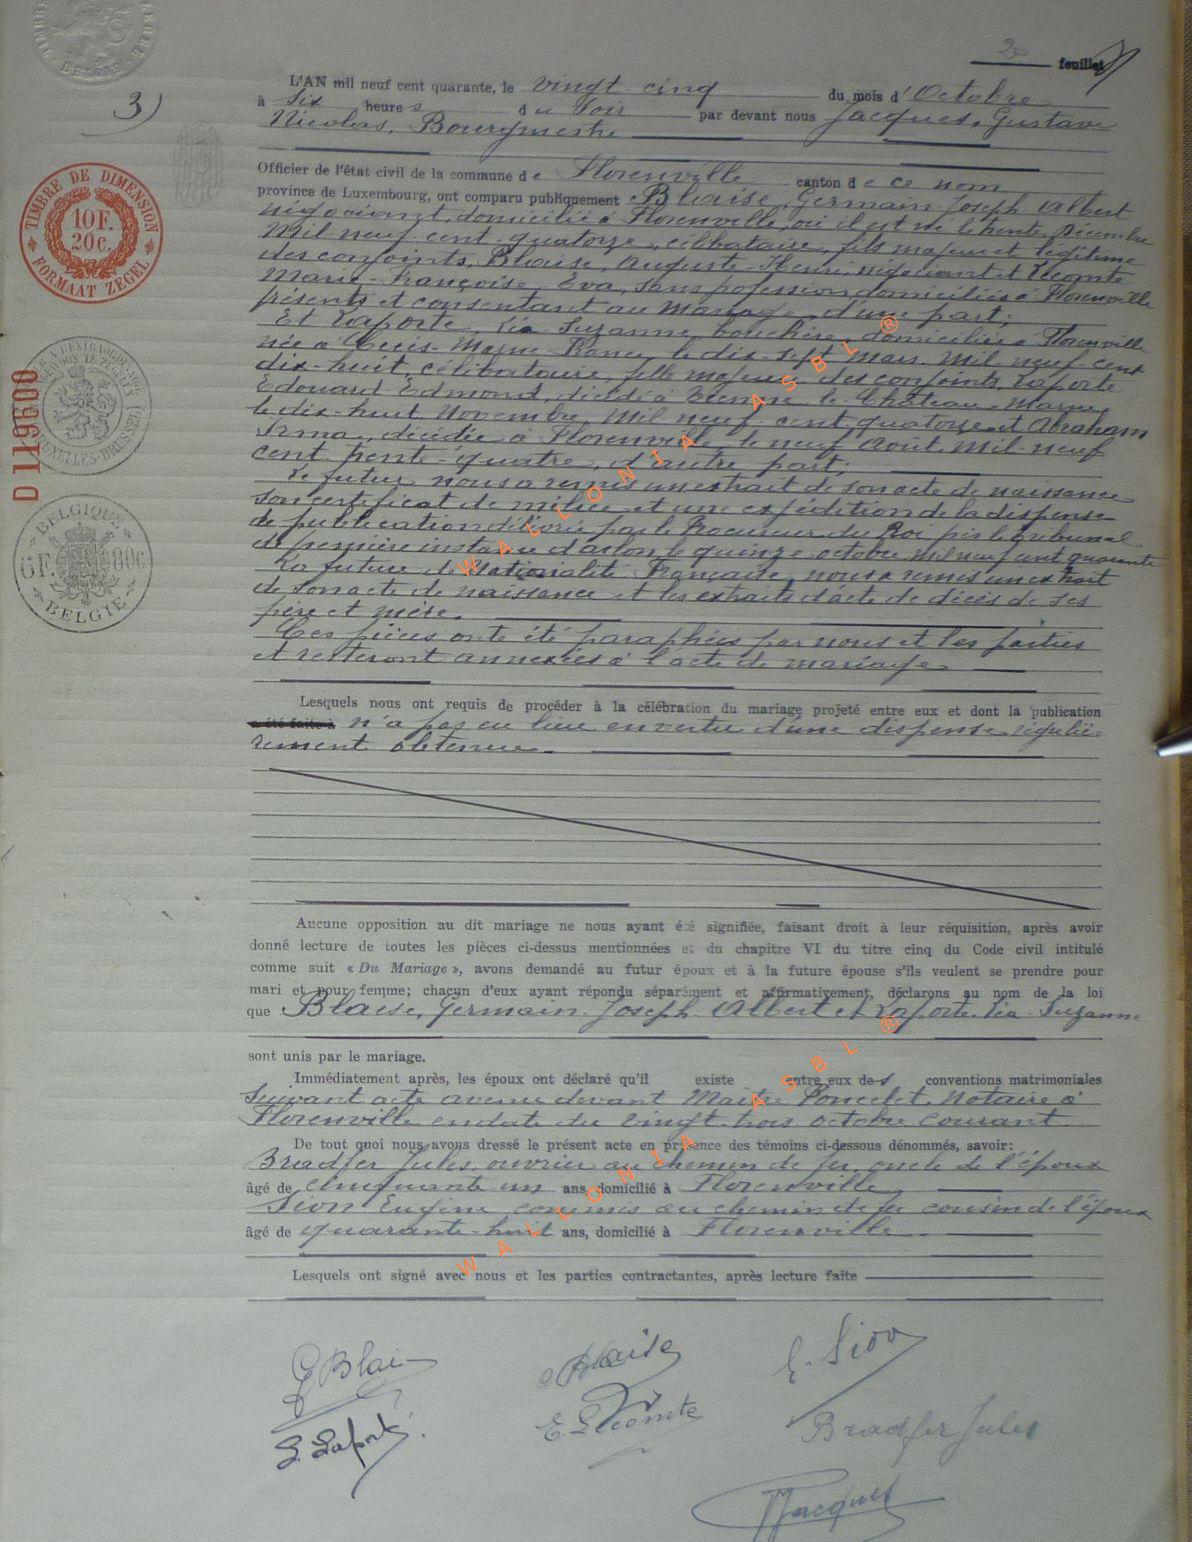 BELGIE
3)
feuillet
L'AN mil neuf cent quarante, le vingt cinq du mois d'Octobre
à six heures du soir par devant nous Jacques, Gustave
Nicolas, Bourgmestre
Officier de l'état civil de la commune de Florenville canton de ce nom
province de Luxembourg, ont comparu publiquement Blaise, Germain-Joseph Albert
négociant, domicilié à Florenville, où il est né le trente Décembre
Mil neuf cent quatorze, célibataire, fils majeur et légitime
des conjoints, Blaise, Auguste-Henri, négociant et Lecomte
Marie-Françoise, Eva, sans profession, domiciliés à Florenville
présents et consentant au Mariage, d'une part;
Et Laporte, Léa Suzanne, bouchère, domiciliée à Florenville
née à Marne France, le dix-sept Mars, Mil neuf-cent
dix-huit, célibataire, fille majeure des conjoints, Laporte
Edouard Edmond, décédé à le-Château Marne
le dix-huit Novembre, Mil neuf-cent quatorze et Abraham
Irma, décédée à Florenville, le neuf Août Mil-neuf
cent trente-quatre, d'autre part;
Le futur nous a remis un extrait de son acte de naissance
son certificat de milice et une expédition de la dispense
de publication délivrée par le Procureur du Roi près le tribunal
de première instance d'Arlon le quinze octobre mil neuf cent quarante
La future de Nationalité Française, nous a remis un extrait
de son acte de naissance et les extraits d'acte de décès de ses
père et mère.
Ces pièces onte été paraphées par nous et les parties
et resteront annexées à l'acte de mariage
Lesquels nous ont requis de procéder à la célébration du mariage projeté entre eux et dont la publication
a été faite à n'a pas eu lieu en vertu d'une dispense réguliè-
rement obtenue.
Aucune opposition au dit mariage ne nous ayant été signifiée, faisant droit à leur réquisition, après avoir
donné lecture de toutes les pièces ci-dessus mentionnées et du chapitre VI du titre cinq du Code civil intitulé
comme suit « Du Mariage », avons demandé au futur époux et à la future épouse s'ils veulent se prendre pour
mari et pour femme; chacun d'eux ayant répondu séparément et affirmativement, déclarons au nom de la loi
que Blaise, Germain-Joseph-Albert et Laporte Léa-Suzanne
sont unis par le mariage.
Immédiatement après, les époux ont déclaré qu'il existe entre eux des conventions matrimoniales
suivant acte avenu devant Maître Poncelet, Notaire à
Florenville en date du vingt-trois octobre courant.
De tout quoi nous avons dressé le présent acte en présence des témoins ci-dessous dénommés, savoir:
Bradfer Jules, ouvrier au chemin de fer, oncle de l'époux
âgé de cinquante un ans, domicilié à Florenville
Sion Eugène commis au chemin de fer cousin de l'époux
âgé de quarante-huit ans, domicilié à Florenville
Lesquels ont signé avec nous et les parties contractantes, après lecture faite
G Blaise
Blaise
E. Sion
L. Laporte
E. Lecomte
Bradfer Jules
Jacques
TIMBRE DE DIMENSION
10F.
20c.
FORMAAT ZEGEL
D 119600
BELGIQUE
6F. 80c.
BELGIE
WALLONIA ASBL ®
WALLONIA ASBL ®